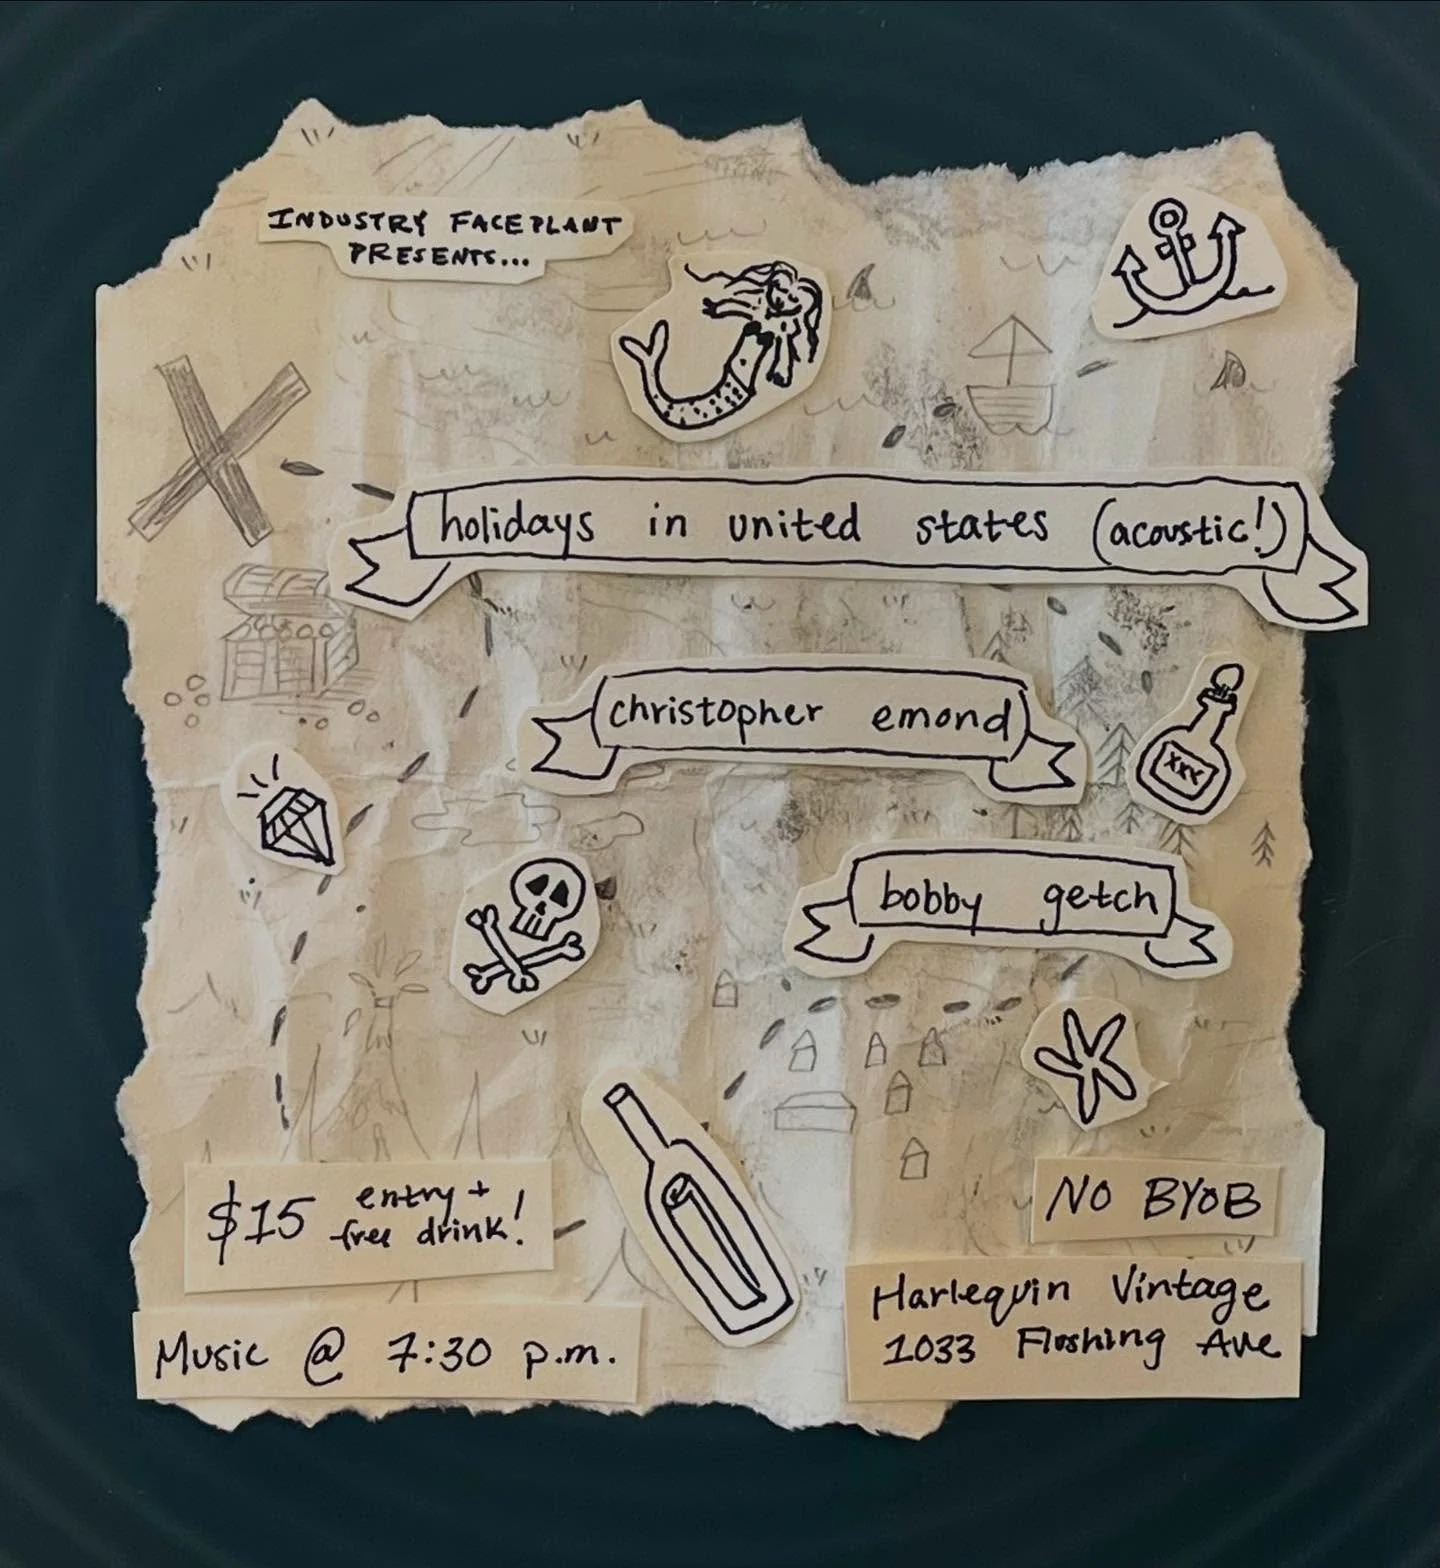 INDUSTRY FACEPLANT
PRESENTS...
holidays in united states (acoustic!)
christopher emond
XXX
bobby getch
$15 entry +
free drink!
NO BYOB
Music @ 7:30 p.m.
Harlequin Vintage
1033 Flushing Ave